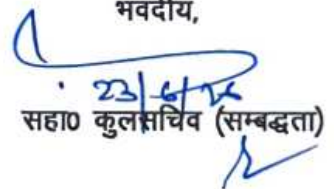 भवदीय,
23/6/26
सहा0 कुलसचिव (सम्बद्धता)